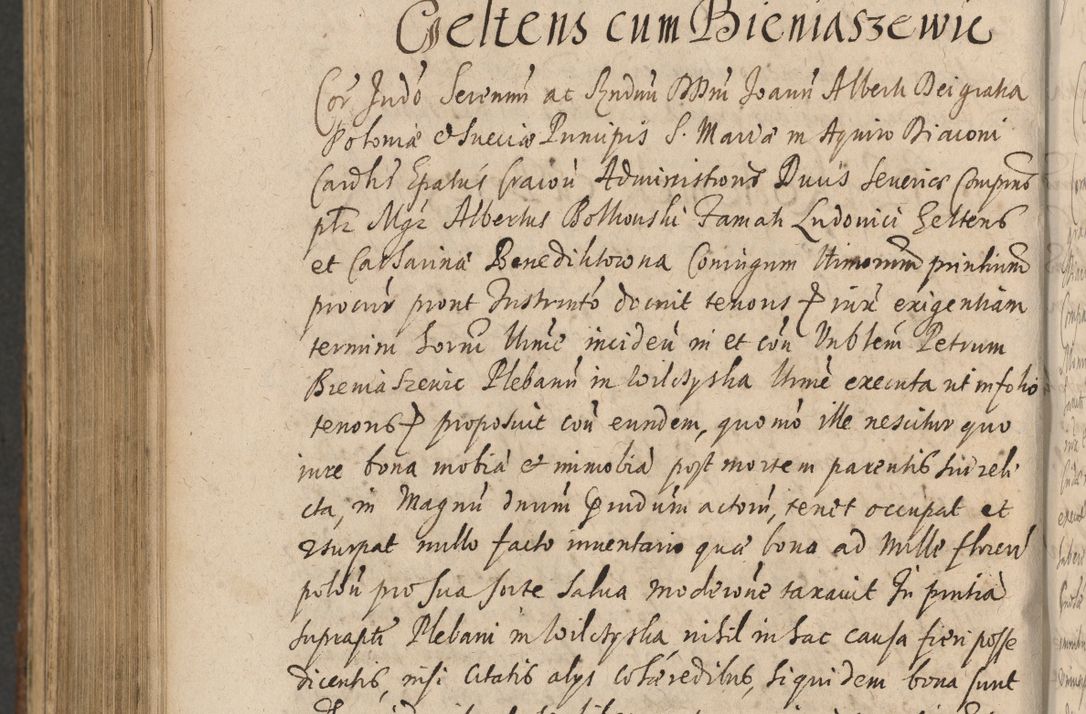 Geltens cum Bieniaszewic
Cor Indō Serenmī ac Rndmī DDnī Joann Alberti Dei gratia
Poloniæ et Sueciæ Principis S. Mariæ in Aquiro Diaconi
Cardlis Epatus Cracoū Administions Ducis Severiæ Compns
Mgr Albertus Bolkowski Famati Ludovici Geltens
et Catharinæ Benediktowna Coniugum principium
procur prout Instrumto docuit tenoris iuxē exigentiam
termini horni incideū in et coū Vnblem Petrum
Bieniaszewic Plebanū in Wilczyska executa ut in folio
tenoris proposuit coū eundem, quomō ille nescitur quo
iure bona mobia et immobia post mortem parentis sui reli
cta, in Magnū dnum Pndum actorū, tenet occupat et
vsurpat nullo facto inuentario quæ bona ad Mille floren
polon pro sua sorte salua moderōne taxauit In pntia
suprapti Plebani in Wilczyska, nihil in hac causa fieri posse
dicentis, nisi citatis alys cohæredibus, siquidem bona sunt